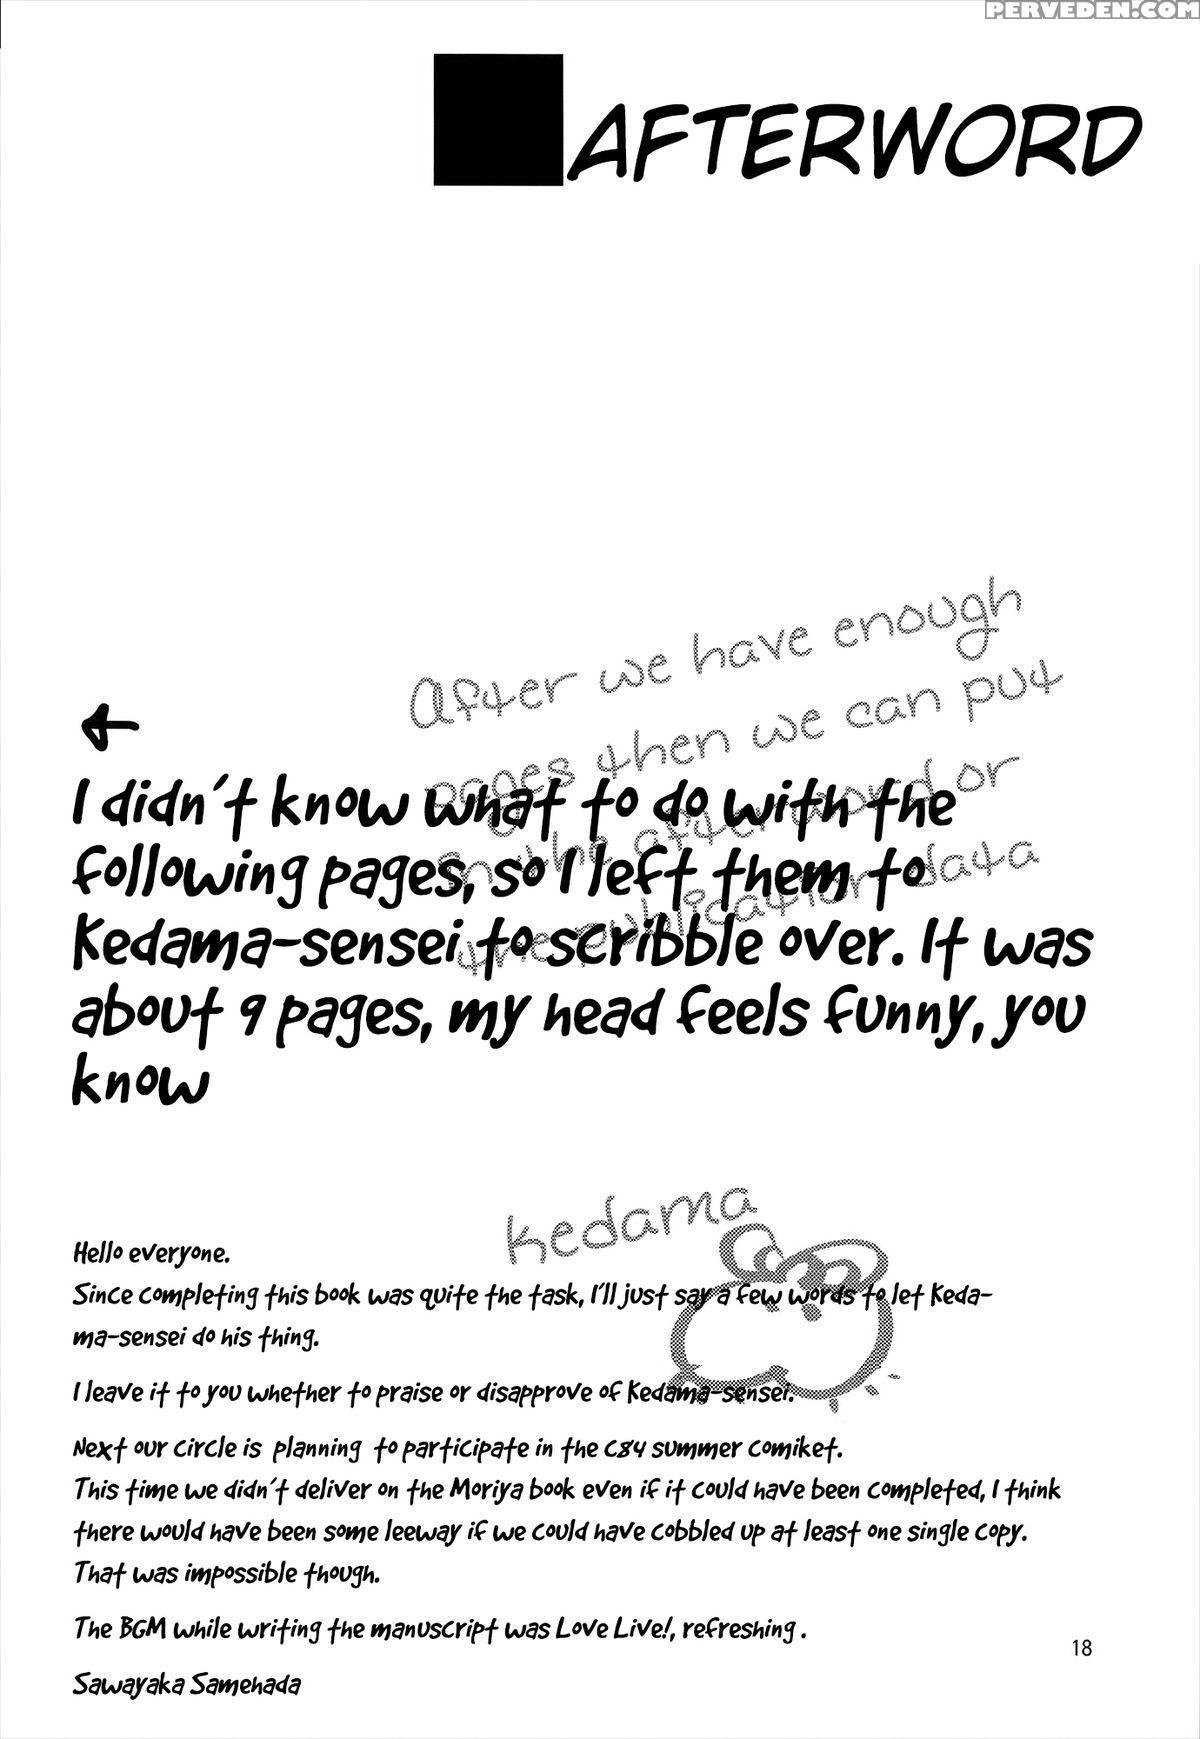 PERVEDEN.COM
AFTERWORD
After we have enough
pages then we can put
in the afterword or
the publication data
←
I didn't know what to do with the
following pages, so I left them to
Kedama-sensei to scribble over. It was
about 9 pages, my head feels funny, you
know
Kedama
Hello everyone.
Since completing this book was quite the task, I'll just say a few words to let Keda-
ma-sensei do his thing.
I leave it to you whether to praise or disapprove of Kedama-sensei.
Next our circle is planning to participate in the C84 summer comiket.
This time we didn't deliver on the Moriya book even if it could have been completed, I think
there would have been some leeway if we could have cobbled up at least one single copy.
That was impossible though.
The BGM while writing the manuscript was Love Live!, refreshing.
Sawayaka Samehada
18